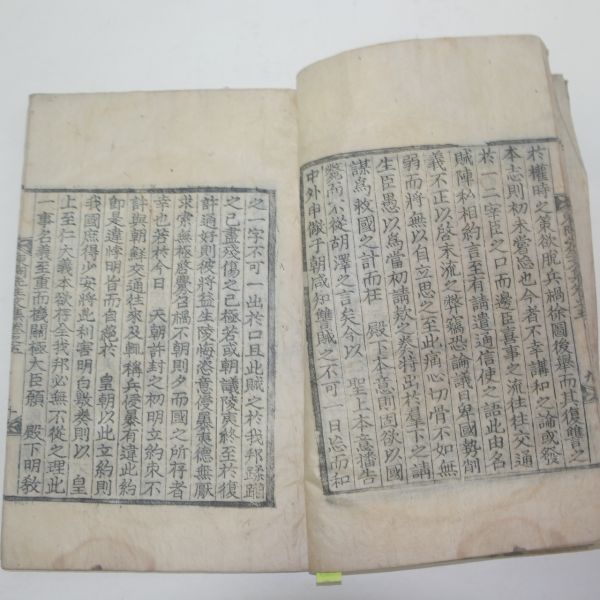 於權時之策欲脫兵禍徐圖後擧而其復讐之
本志則初未嘗忘也今者不幸講和之論或發
於一二宰臣之口而邊臣
事之流往往交通
賊陣私相約言至有請遣通信使之語此由名
義不正以啓末流之弊竊恐論議日卑國勢削
弱而將無以自立思之至此痛心切骨不如無
生臣愚以爲當初請款之奏特出於羣下之請
謀爲救國之計而在 殿下本意則固欲以國
斃而不從胡澤之言矣今以 聖上本意播告
中外申儆于朝咸知讐賊之不可一日忘而和
之一字不可一出於口且此賊之於我邦蹂躪
之已盡殘傷之已極若或朝議陵夷終至於復
許通好則彼將益生陵侮恣意侵暴爽德無厭
求索無極
名稱不朝則夕而國之所存者
幸也若於今日 天朝許封之初明立約束不
許與朝鮮交通往來及輒稱兵侵暴有違此約
卽是違悖明旨而自絶於 皇朝以此立約則
我國庶得少安將此利害明白敷奏則以 皇
上至仁大義本欲存全我邦必無不從之理此
一事名義至重而機關極大臣願 殿下明敎